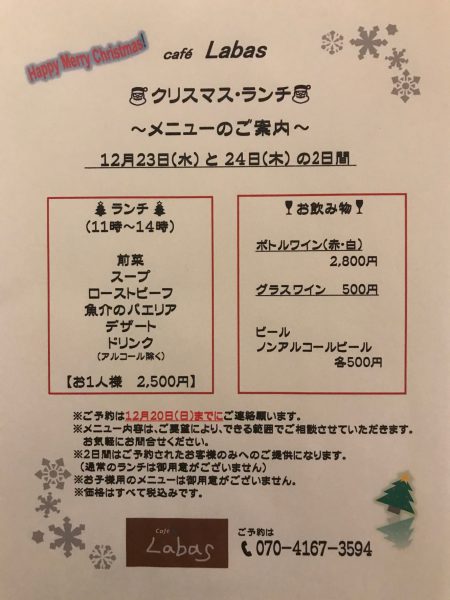 Happy Merry Christmas!
café Labas
クリスマス・ランチ
～メニューのご案内～
12月23日(水) と 24日(木) の2日間
ランチ
(11時～14時)
前菜
スープ
ローストビーフ
魚介のパエリア
デザート
ドリンク
(アルコール除く)
【お1人様 2,500円】
お飲み物
ボトルワイン(赤・白)
2,800円
グラスワイン 500円
ビール
ノンアルコールビール
各500円
※ご予約は12月20日(日)までにご連絡願います。
※メニュー内容は、ご要望により、できる範囲でご相談させていただきます。
お気軽にお問合せください。
※2日間はご予約されたお客様のみへのご提供になります。
(通常のランチは御用意がございません)
※お子様用のメニューは御用意がございません。
※価格はすべて税込みです。
Café
Labas
ご予約は
070-4167-3594